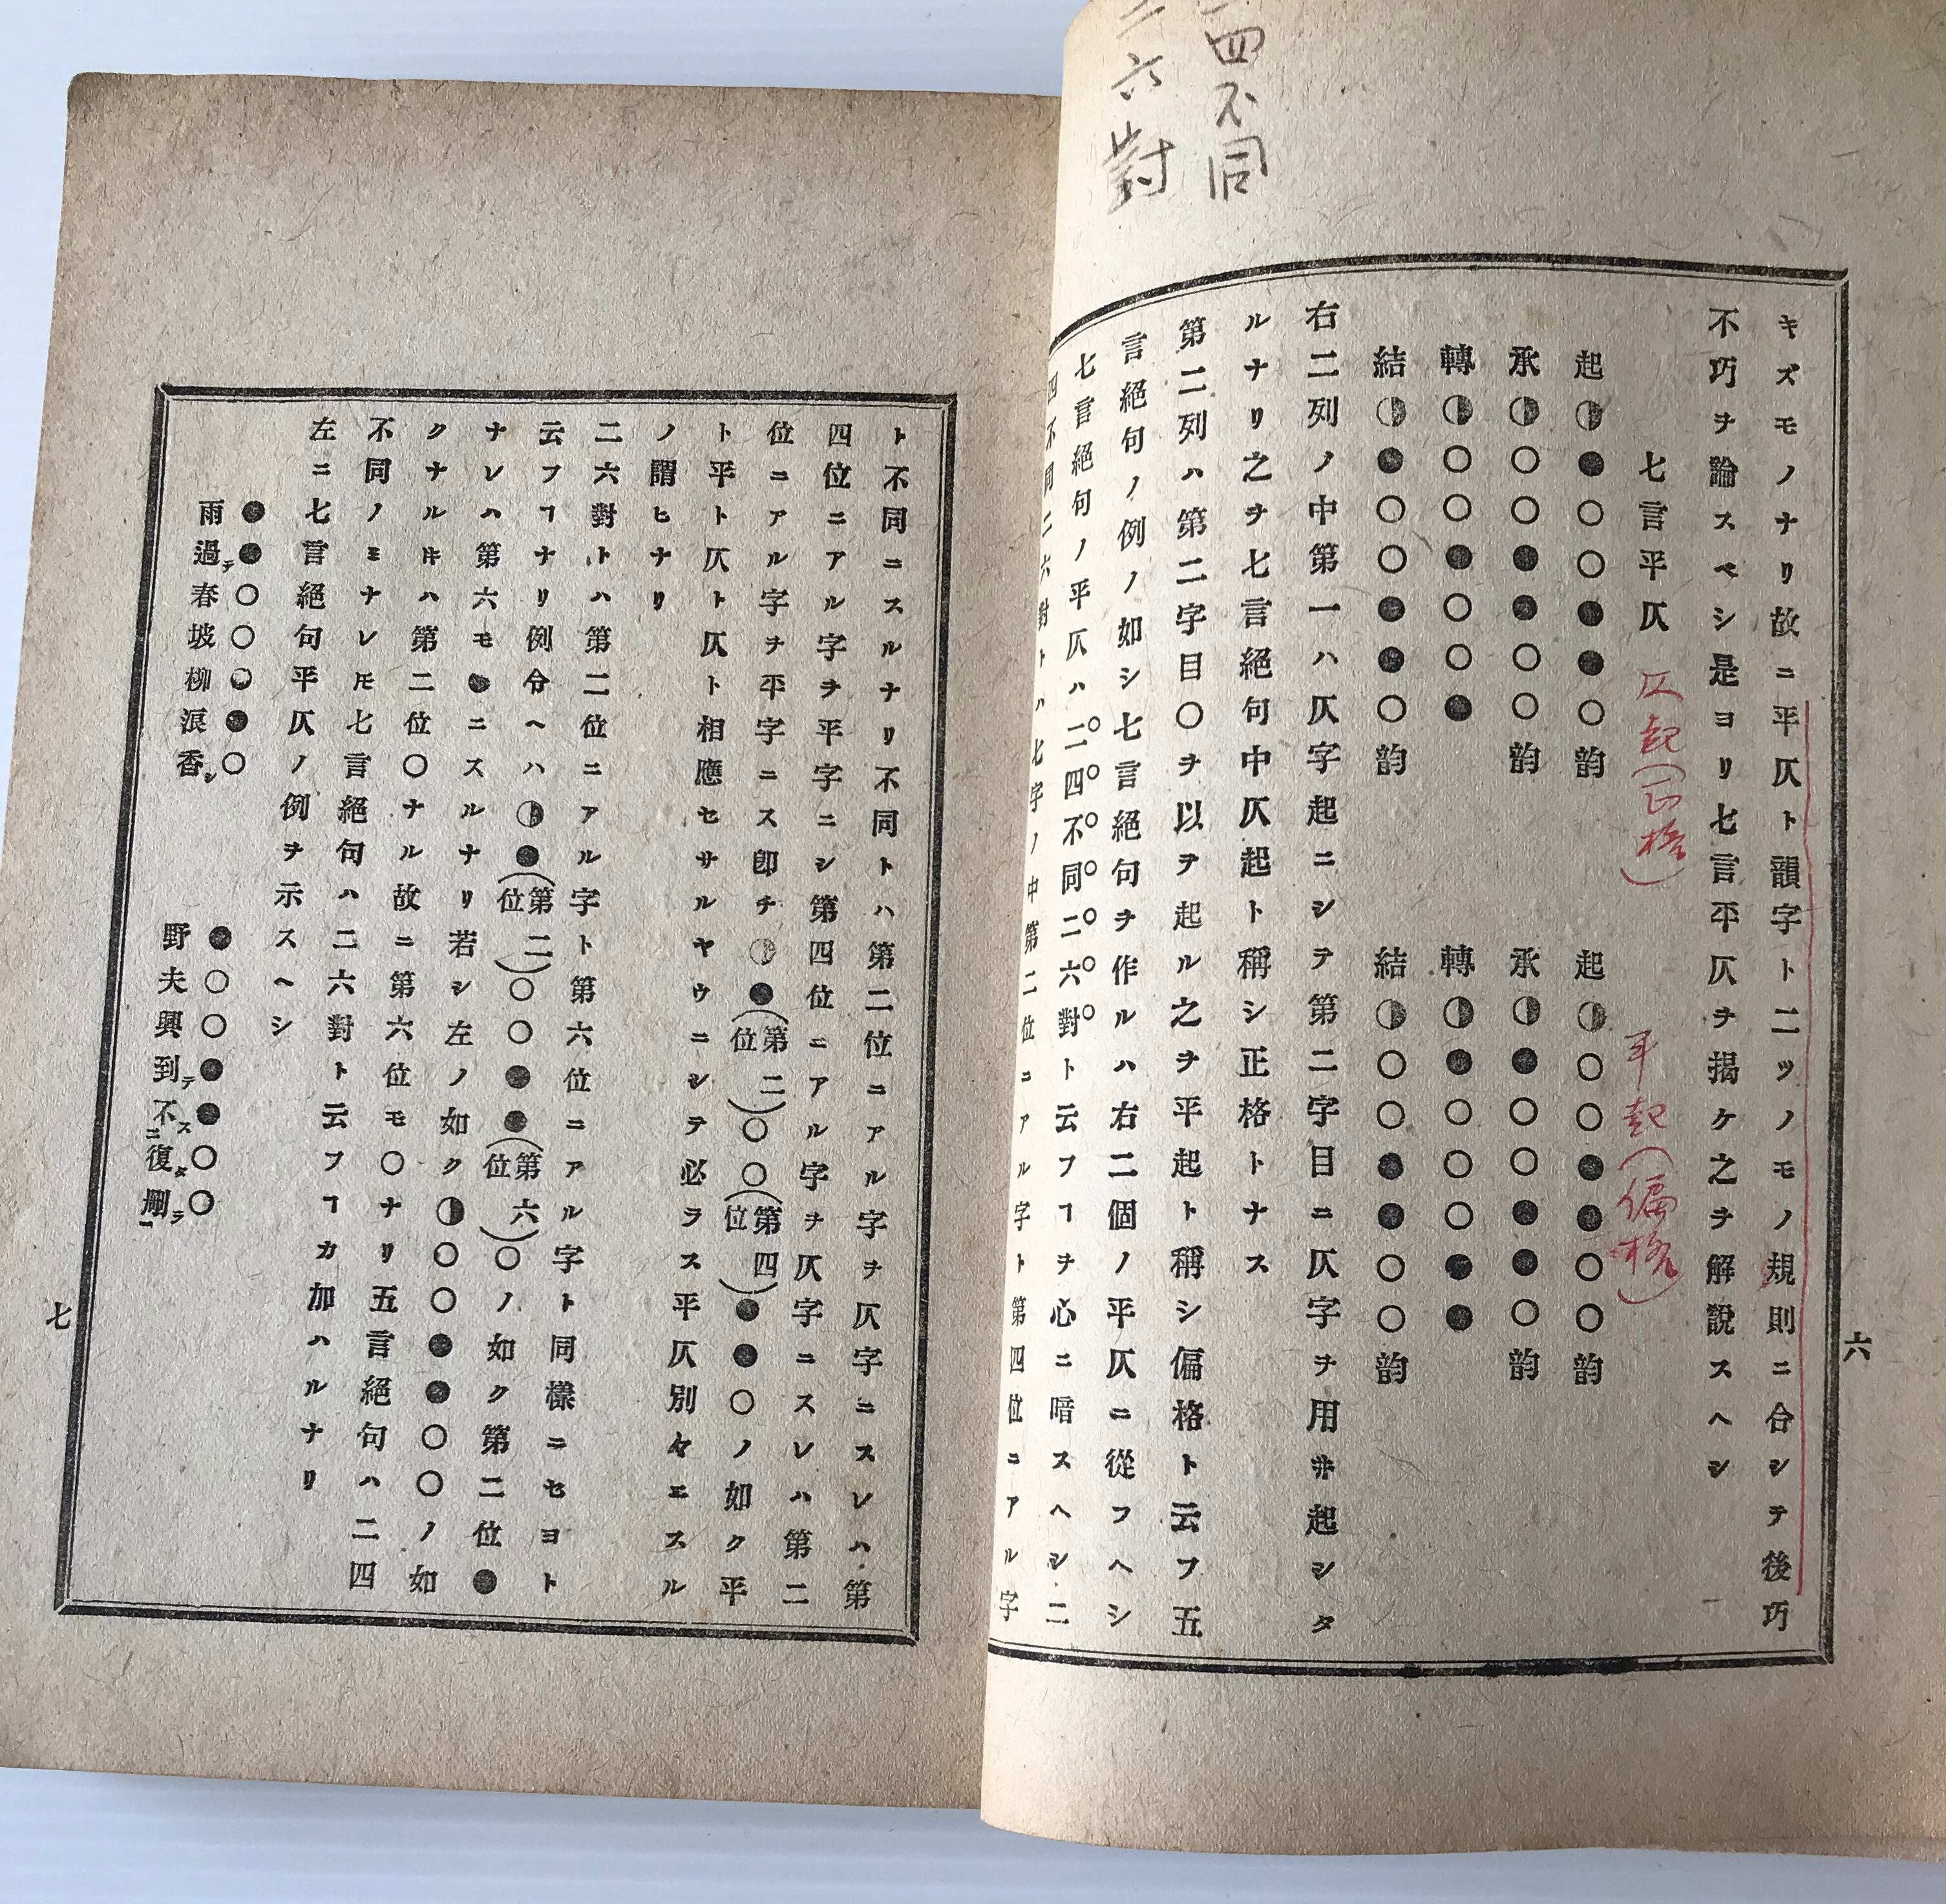 四不同
二六對
六
キズモノナリ故ニ平仄ト韻字ト二ツノモノ規則ニ合シテ後巧
不巧ヲ論スベシ是ヨリ七言平仄ヲ揭ケ之ヲ解說スヘシ
七言平仄 仄起(正格) 平起(偏格)
起◑●○○●●○韵 起◑○○●●○○韵
承◑○○●●○○韵 承◑●○○●●○韵
轉◑○○●○○● 轉◑●○○○●●
結◑●○○●●○韵 結◑○○●●○○韵
右二列ノ中第一ハ仄字起ニシテ第二字目ニ仄字ヲ用井起シタ
ルナリ之ヲ七言絕句中仄起ト稱シ正格トナス
第二列ハ第二字目○ヲ以ヲ起ル之ヲ平起ト稱シ偏格ト云フ五
言絕句ノ例ノ如シ七言絕句ヲ作ルハ右二個ノ平仄ニ從フヘシ
七言絕句ノ平仄ハ二四不同二六對ト云フヿヲ心ニ暗スヘシ二
四不同二六對トハ七字ノ中第二位ニアル字ト第四位ニアル字
ト不同ニスルナリ不同トハ第二位ニアル字ヲ仄字ニスレハ第
四位ニアル字ヲ平字ニシ第四位ニアル字ヲ仄字ニスレハ第二
位ニアル字ヲ平字ニス卽チ◑●(第二位)○○(第四位)●●○ノ如ク平
ト平ト仄ト仄ト相應セサルヤウニシテ必ラス平仄別々ニスル
ノ謂ヒナリ
二六對トハ第二位ニアル字ト第六位ニアル字ト同樣ニセヨト
云フヿナリ例令ヘハ◑●(第二位)○○●●(第六位)○ノ如ク第二位●
ナレハ第六モ●ニスルナリ若シ左ノ如ク◑○○●●○○ノ如
クナル𪜈ハ第二位○ナル故ニ第六位モ○ナリ五言絕句ハ二四
不同ノミナレ𪜈七言絕句ハ二六對ト云フヿカ加ハルナリ
左ニ七言絕句平仄ノ例ヲ示スヘシ
●●○○◑●○ ●○○●●○○
雨過テ春坡柳淚香シ 野夫興到テ不ニス復タ劚一ラ
七